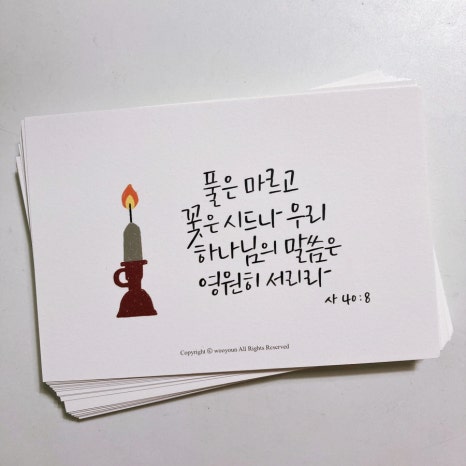 풀은 마르고
꽃은 시드나 우리
하나님의 말씀은
영원히 서리라
사 40:8
Copyright ⓒ wooyoun All Rights Reserved